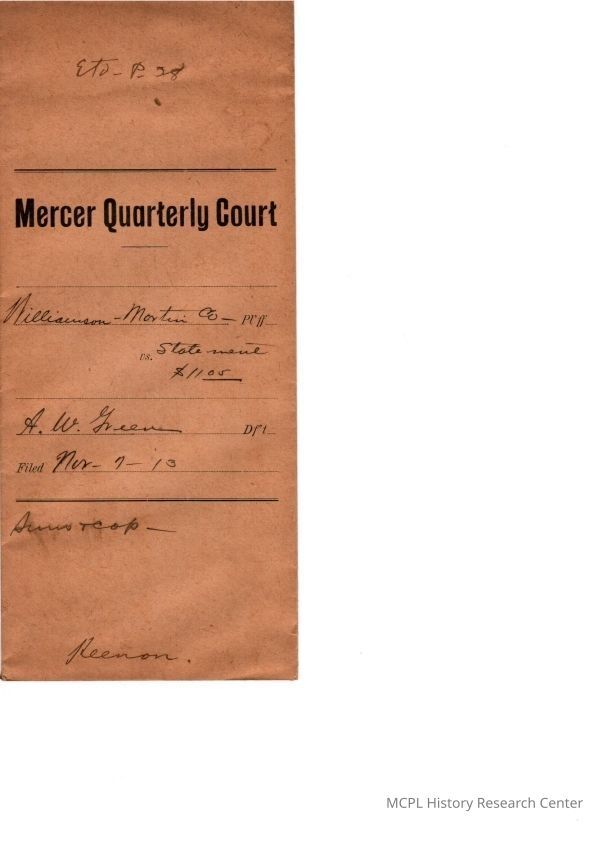 Etd - P. 28
Mercer Quarterly Court
Williamson - Martin Co - Pl'ff
vs. Statement
$11.05
A. W. Greene Df't
Filed Nov - 7 - 13
Sums & cop -
Keenon.
MCPL History Research Center